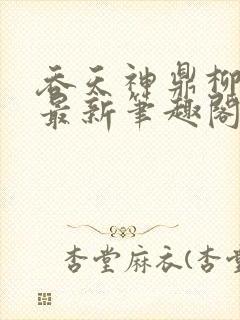 吞天神鼎柳
最新笔趣阁
杏堂麻衣(杏堂